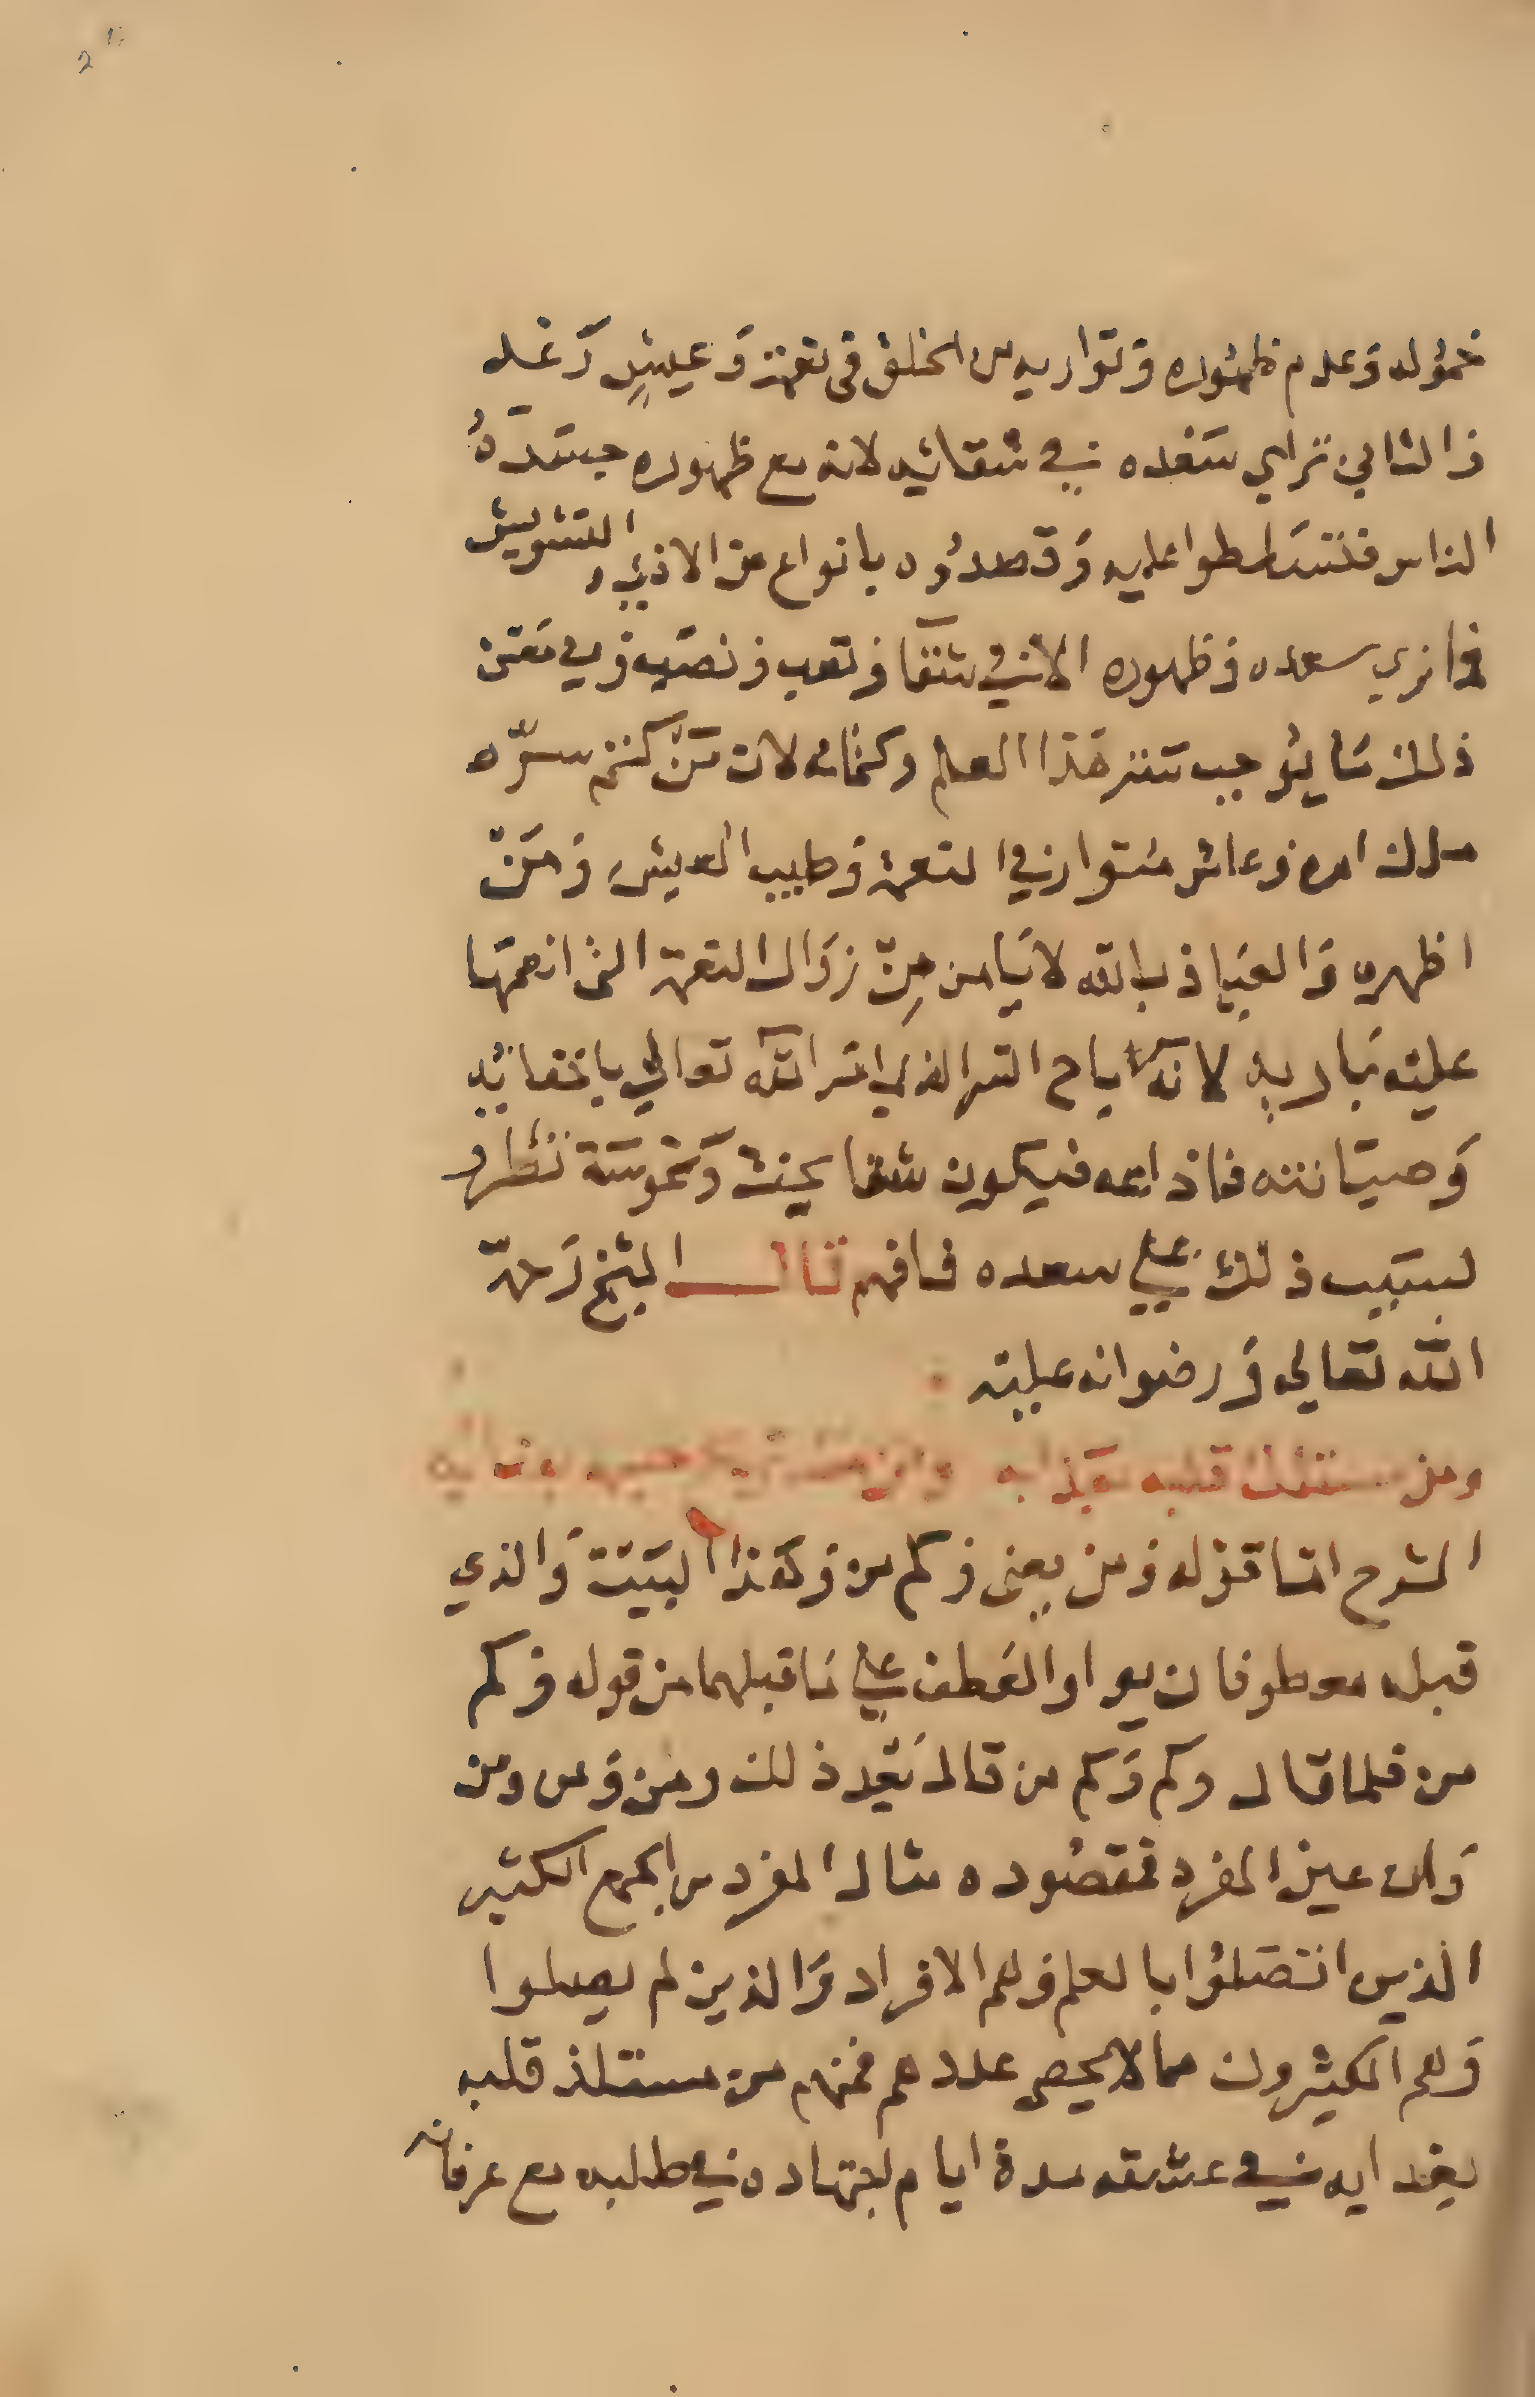 خموله وعدم ظهوره وتواريه من الخلق في نعمة وعيش رغد
والثاني تراي سعده في شقائه لانه مع ظهوره حسده
الناس فتسلطوا عليه وقصدوه بانواع من الاذي والتشويش
فما نري سعده وظهوره الا في شقا وتعب ونصب وفي معنى
ذلك ما يوجب ستر هذا العلم وكتمانه لان من كتم سره
ملك امره وعاش متوار في النعمة وطيب العيش ومن
اظهره والعياذ بالله لا يامن من زوال النعمة التي انعمها
عليه باريه لانه اباح السر الذي امر الله تعالي باخفائه
وصيانته فاذاعه فيكون شقا بحث ونحوسة نظر
لسبب ذلك علي سعده فافهم قال الشيخ رحمة
الله تعالي ورضوانه عليه
ومن مستلذ قلبه بعذابه
الشرح اما قوله ومن يعني وكم من وهذا البيت والذي
قبله معطوفان بواو العطف علي ما قبلهما من قوله وكم
من فلما قال وكم وكم من قال بعد ذلك ومن ومن ومن
وان عين المفرد فمقصوده مثال المفرد من الجمع الكثير
الذين اتصلوا بالعلم وهم الافراد والذين لم يصلوا
وهم الكثيرون مما لا يحصي عددهم فمنهم من مستلذ قلبه
بعذابه في عشقه مدة ايام اجتهاده في طلبه مع عرفانه